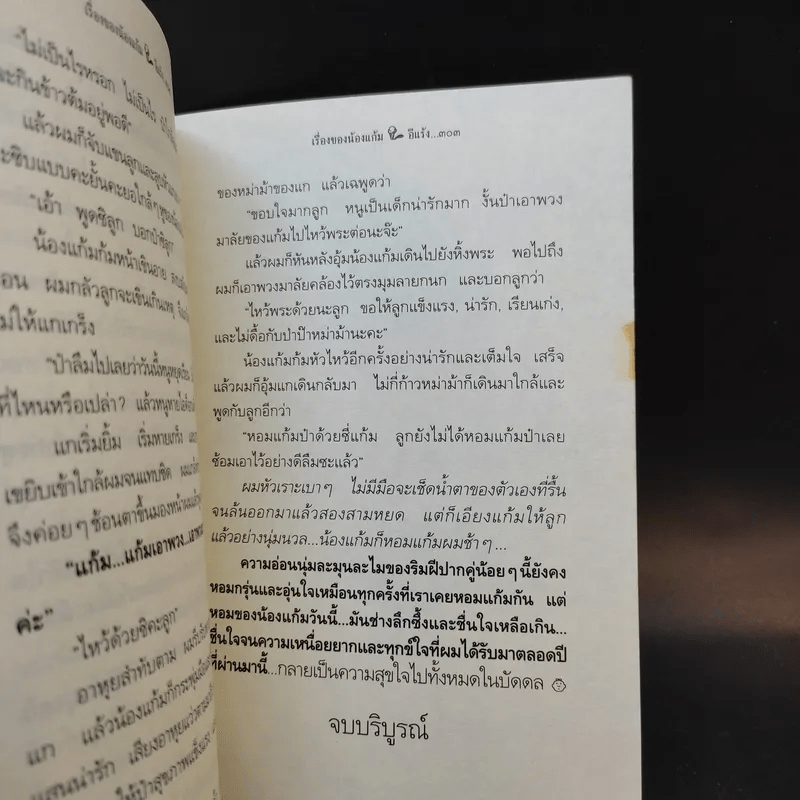 เรื่องของน้องแก้ม
"ไม่เป็นไรหรอก ไม่เป็นไร
ะกินข้าวต้มอยู่พอดี"
แล้วผมก็จับแขนลูกและ
ะซิบแบบคะยั้นคะยอใกล้ๆหู
"เอ้า พูดซิลูก บอกป๋าซิลูก"
น้องแก้มก้มหน้าเขินอาย
อน ผมกลัวลูกจะเขินเกินเหตุ
มให้แกเกร็ง
"ป๋าลืมไปเลยว่าวันนี้หนูหยุดเรียน
ที่ไหนหรือเปล่า? แล้วหนูทาย
แกเริ่มยิ้ม เริ่มหายเกร็ง
เขยิบเข้าใกล้ผมจนแทบชิด
จึงค่อยๆช้อนตาขึ้นมองหน้าผม
"แก้ม...แก้มเอาพวง...
ค่ะ"
"ไหว้ด้วยซิคะลูก"
อาหุยสำทับตาม
แก แล้วน้องแก้มก็กระพุ่ม
แสนน่ารัก เสียงอาหุยแว่ว
ให้ป๋าสุขภาพแข็งแรง
เรื่องของน้องแก้ม อีแร้ง...๓๐๓
ของหม่าม้าของแก แล้วเฉพูดว่า
"ขอบใจมากลูก หนูเป็นเด็กน่ารักมาก งั้นป๋าเอาพวง
มาลัยของแก้มไปไหว้พระต่อนะจ๊ะ"
แล้วผมก็หันหลังอุ้มน้องแก้มเดินไปยังหิ้งพระ พอไปถึง
ผมก็เอาพวงมาลัยคล้องไว้ตรงมุมลายกนก และบอกลูกว่า
"ไหว้พระด้วยนะลูก ขอให้ลูกแข็งแรง, น่ารัก, เรียนเก่ง,
และไม่ดื้อกับป่าป๊าหม่าม้านะคะ"
น้องแก้มก้มหัวไหว้อีกครั้งอย่างน่ารักและเต็มใจ เสร็จ
แล้วผมก็อุ้มแกเดินกลับมา ไม่กี่ก้าวหม่าม้าก็เดินมาใกล้และ
พูดกับลูกอีกว่า
"หอมแก้มป๋าด้วยซี่แก้ม ลูกยังไม่ได้หอมแก้มป๋าเลย
ซ้อมเอาไว้อย่างดีลืมซะแล้ว"
ผมหัวเราะเบาๆ ไม่มีมือจะเช็ดน้ำตาของตัวเองที่รื้น
จนล้นออกมาแล้วสองสามหยด แต่ก็เอียงแก้มให้ลูก
แล้วอย่างนุ่มนวล...น้องแก้มก็หอมแก้มผมช้าๆ...
ความอ่อนนุ่มละมุนละไมของริมฝีปากคู่น้อยๆนี้ยังคง
หอมกรุ่นและอุ่นใจเหมือนทุกครั้งที่เราเคยหอมแก้มกัน แต่
หอมของน้องแก้มวันนี้...มันช่างลึกซึ้งและชื่นใจเหลือเกิน...
ชื่นใจจนความเหนื่อยยากและทุกข์ใจที่ผมได้รับมาตลอดปี
ที่ผ่านมานี้...กลายเป็นความสุขใจไปทั้งหมดในบัดดล
จบบริบูรณ์